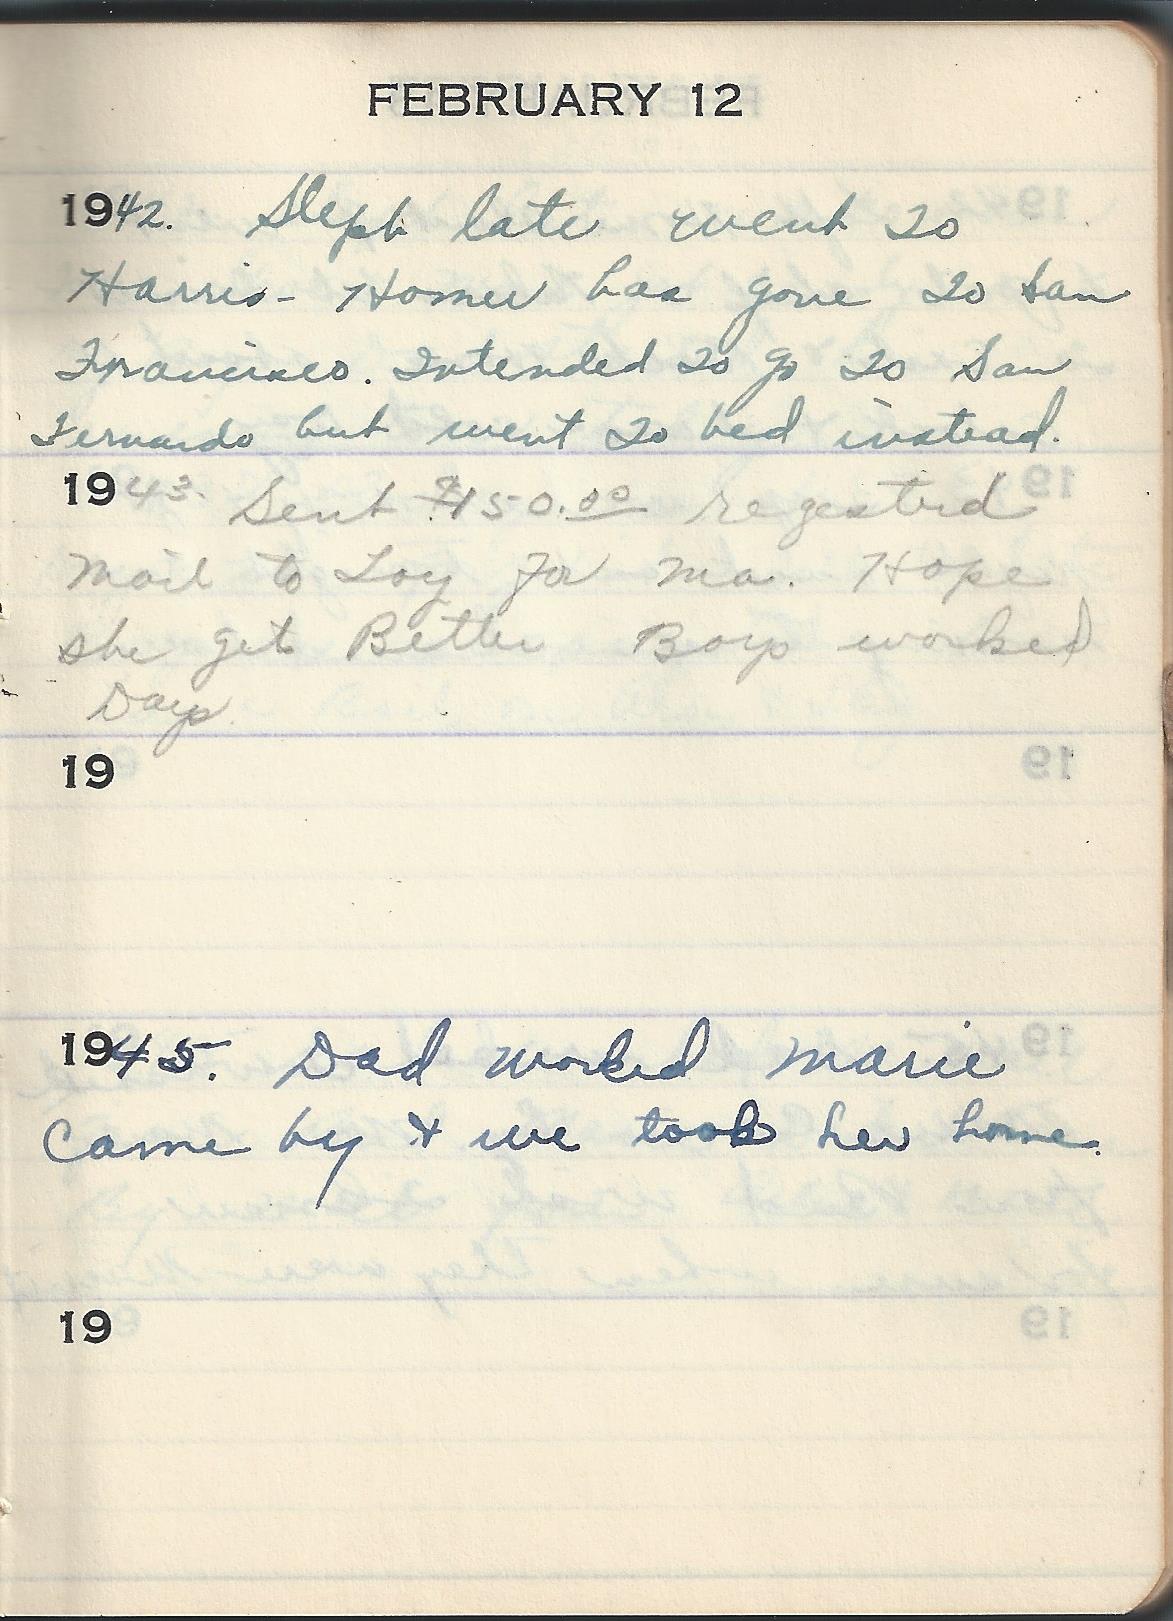 FEBRUARY 12
1942. Slept late went to
Harris - Homer has gone to San
Francisco. Intended to go to San
Fernando but went to bed instead.
1943. Sent $150.00 regesterd
Mail to Loy for Ma. Hope
she get Better Boys worked
Days
19
1945. Dad worked Marie
Came by & we took her home.
19